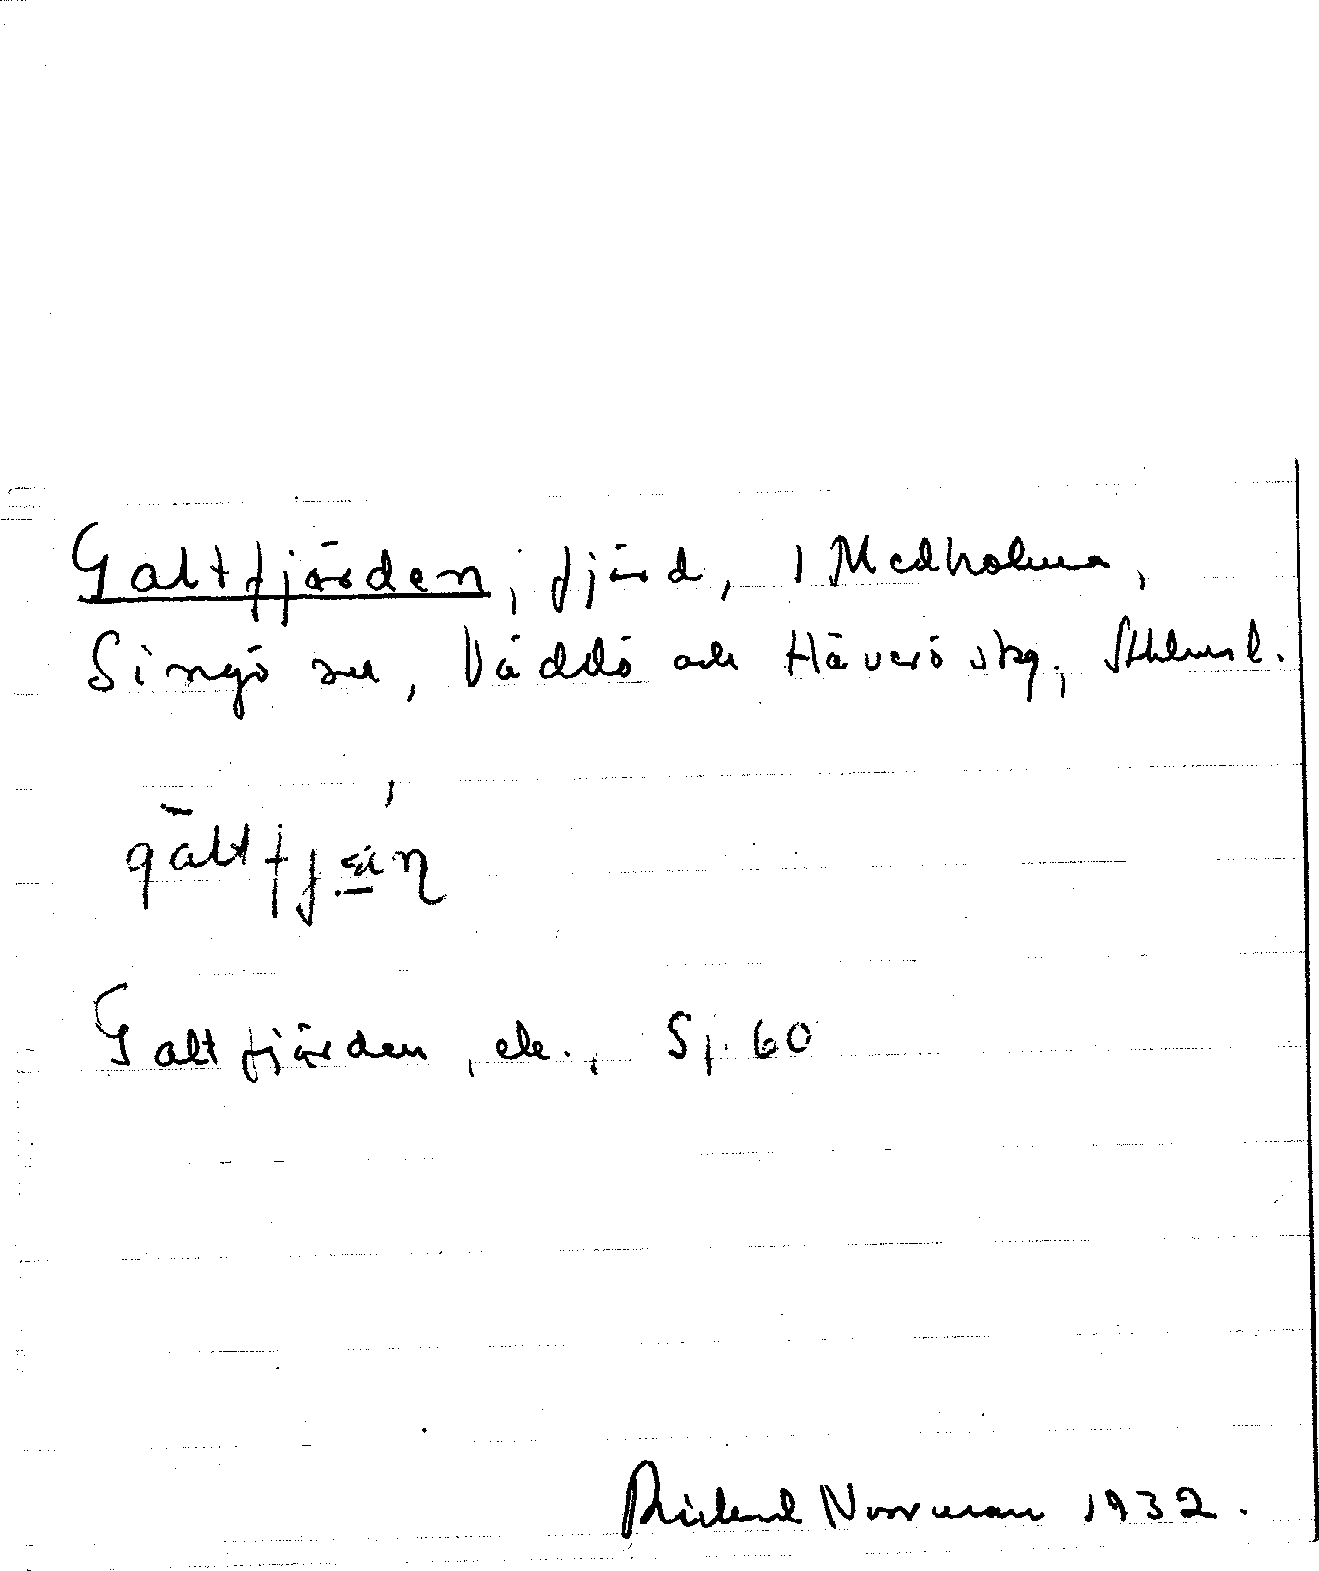 Galtfjärden, fjärd, i Medholma,
Singö sn, Väddö och Häverö skg, Sthlms l.
Galtfjärden, ek., Sj. 60
Rickard Norrman 1932.